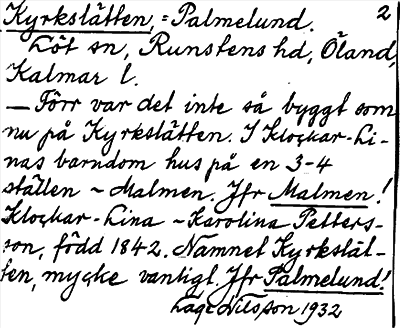 Kyrkslätten, = Palmelund. 2
Löt sn, Runstens hd, Öland,
Kalmar l.
— Förr var det inte så byggt som
nu på Kyrkslätten. I Klockar-Li-
nas barndom hus på en 3-4
ställen ~ Malmen. Jfr Malmen!
Klockar-Lina ~ Karolina Petters-
son, född 1842. Namnet Kyrkslät-
ten, mycke vanligt. Jfr Palmelund!
Lage Nilsson 1932